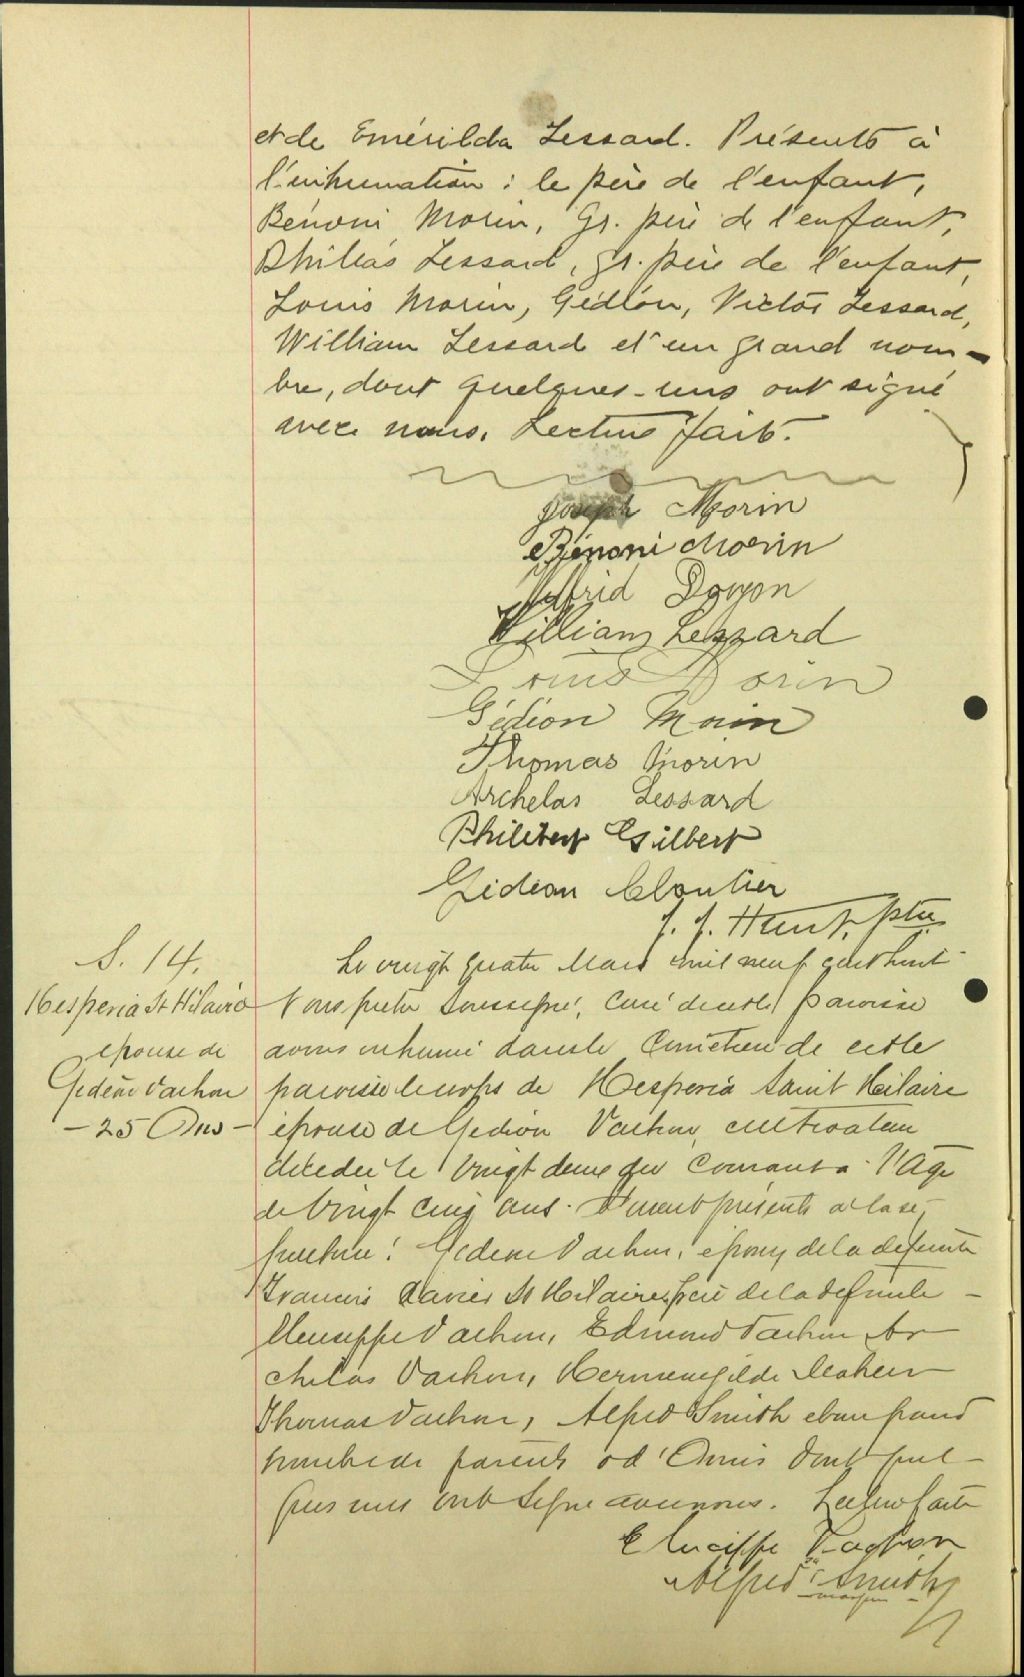 et de Emérilda Lessard. Présents à
l'inhumation : le père de l'enfant,
Bénoni Morin, Gr. père de l'enfant,
Philéas Lessard, gr. père de l'enfant,
Louis Morin, Gédéon, Victor Lessard,
William Lessard et un grand nom-
bre, dont quelques-uns ont signé
avec nous. Lecture faite.
Joseph Morin
Bénoni Morin
Wilfrid Doyon
William Lessard
Louis Morin
Gédéon Morin
Thomas Morin
Archelas Lessard
Philibert Gilbert
Gédéon Cloutier
J. J. Hunt, ptre
S. 14.
Hesperia St Hilaire
épouse de
Gedéon Vachon
- 25 Ans -
Le vingt quatre Mars mil neuf cent huit
Nous pretre soussigné, curé de cette paroisse
avons inhumé dans le Cimetiere de cette
paroisse le corps de Hesperia Saint Hilaire
épouse de Gedéon Vachon, cultivateur
décédée le vingt deux du courant a l'âge
de vingt cinq ans. Etaient présents a la sé-
pulture : Gedeon Vachon, époux de la defunte
Francis Xavier St Hilaire, père de la defunte -
Vachon, Edmond Vachon Ar-
chelas Vachon, Hermenegilde Maheu
Thomas Vachon, Alfred Smith et un grand
nombre de parents et d'Amis dont quel-
ques uns ont signé avec nous. Lecture faite
Vachon
Alfred Smith